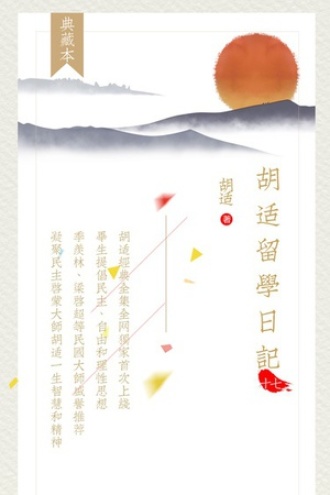 典藏本
胡适留學日記
十七
胡适
著
胡适經典全集全网獨家首次上綫
畢生提倡民主、自由和理性思想
季羨林、梁啓超等民國大師感譽推荐
凝聚民主啓蒙大師胡适一生智慧和精神